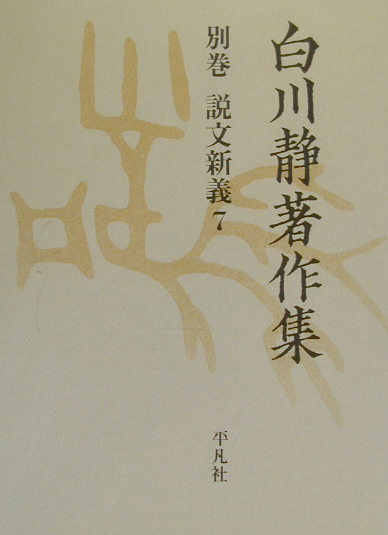 白川静著作集
別巻 説文新義 7
平凡社